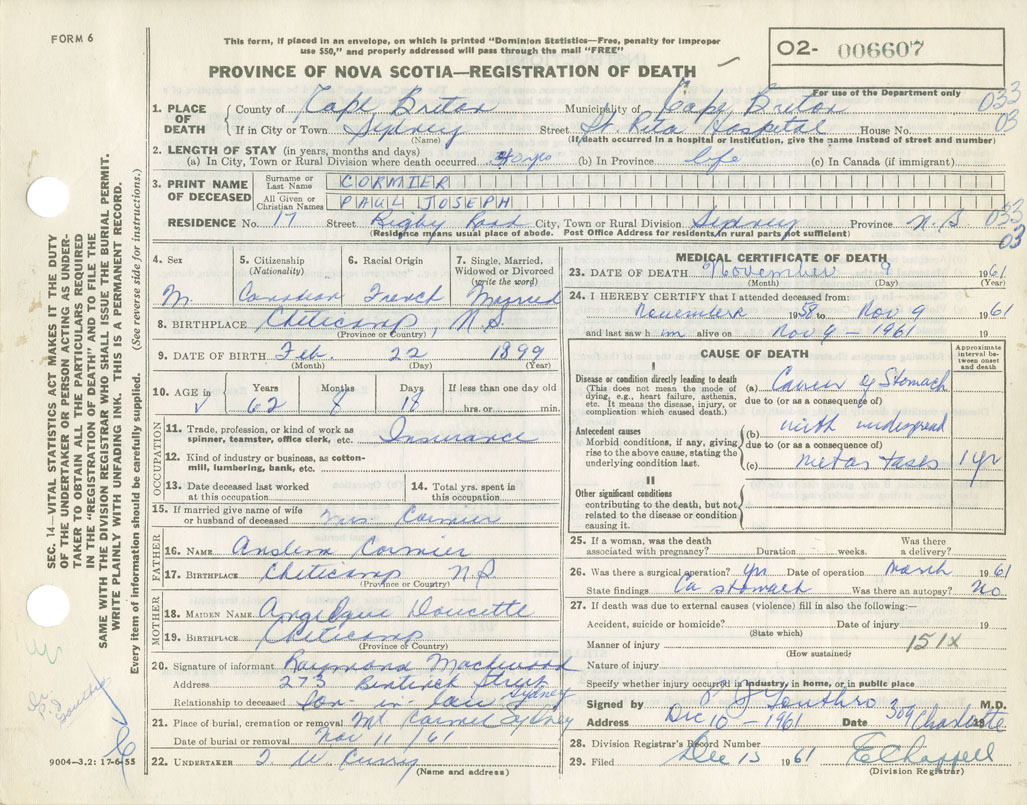 FORM 6
This form, if placed in an envelope, on which is printed "Dominion Statistics—Free, penalty for improper
use $50," and properly addressed will pass through the mail "FREE"
PROVINCE OF NOVA SCOTIA—REGISTRATION OF DEATH
O2- 006607
For use of the Department only
033
03
1. PLACE OF DEATH { County of Cape Breton Municipality of Cape Breton
If in City or Town Sydney Street St. Rita Hospital House No.
(Name) (If death occurred in a hospital or institution, give the name instead of street and number)
2. LENGTH OF STAY (in years, months and days)
(a) In City, Town or Rural Division where death occurred yrs (b) In Province life (c) In Canada (if immigrant)
3. PRINT NAME OF DECEASED
Surname or Last Name CORMIER
All Given or Christian Names PAUL JOSEPH
RESIDENCE No. 17 Street Rigby Road City, Town or Rural Division Sydney Province N.S
033
03
(Residence means usual place of abode. Post Office Address for residents in rural parts not sufficient)
4. Sex M.
5. Citizenship (Nationality) Canadian
6. Racial Origin French
7. Single, Married, Widowed or Divorced (write the word) Married
8. BIRTHPLACE Cheticamp, N.S.
(Province or Country)
9. DATE OF BIRTH Feb. 22 1899
(Month) (Day) (Year)
10. AGE in Years Months Days If less than one day old
62 8 18 hrs. or min.
OCCUPATION
11. Trade, profession, or kind of work as spinner, teamster, office clerk, etc. Insurance
12. Kind of industry or business, as cotton-mill, lumbering, bank, etc.
13. Date deceased last worked at this occupation
14. Total yrs. spent in this occupation
15. If married give name of wife or husband of deceased Mrs. Cormier
FATHER
16. NAME Cormier
17. BIRTHPLACE Cheticamp N.S.
(Province or Country)
MOTHER
18. MAIDEN NAME Angelique Doucette
19. BIRTHPLACE Cheticamp
(Province or Country)
20. Signature of informant Raymond
Address 273 Bentinck Street Sydney
Relationship to deceased Son-in-law
21. Place of burial, cremation or removal Mt Carmel Sydney
Date of burial or removal Nov 11/61
22. UNDERTAKER T. W. Curry
(Name and address)
MEDICAL CERTIFICATE OF DEATH
23. DATE OF DEATH November 9 1961
(Month) (Day) (Year)
24. I HEREBY CERTIFY that I attended deceased from:
November 1958 to Nov 9 1961
and last saw him alive on Nov 9 - 1961 19
CAUSE OF DEATH
Approximate interval between onset and death
I
Disease or condition directly leading to death
(This does not mean the mode of dying, e.g., heart failure, asthenia, etc. It means the disease, injury, or complication which caused death.)
(a) Cancer of Stomach
due to (or as a consequence of)
Antecedent causes
Morbid conditions, if any, giving rise to the above cause, stating the underlying condition last.
(b) with widespread
due to (or as a consequence of)
(c) metastases 1 yr
II
Other significant conditions contributing to the death, but not related to the disease or condition causing it.
25. If a woman, was the death associated with pregnancy? Duration weeks. Was there a delivery?
26. Was there a surgical operation? yes Date of operation March 1961
State findings Ca stomach Was there an autopsy? No
27. If death was due to external causes (violence) fill in also the following:—
Accident, suicide or homicide? Date of injury 19
(State which)
Manner of injury 151X
(How sustained)
Nature of injury
Specify whether injury occurred in industry, in home, or in public place
Signed by M.D.
Address Dec 10 - 1961 Date 309 Charlotte
28. Division Registrar's Record Number
29. Filed Dec 15 1961 E Chappell
(Division Registrar)
SEC. 14—VITAL STATISTICS ACT MAKES IT THE DUTY
OF THE UNDERTAKER OR PERSON ACTING AS UNDER-
TAKER TO OBTAIN ALL THE PARTICULARS REQUIRED
IN THE "REGISTRATION OF DEATH" AND TO FILE THE
SAME WITH THE DIVISION REGISTRAR WHO SHALL ISSUE THE BURIAL PERMIT.
WRITE PLAINLY WITH UNFADING INK. THIS IS A PERMANENT RECORD.
Every item of information should be carefully supplied. (See reverse side for instructions.)
9004—3.2: 17-6-55